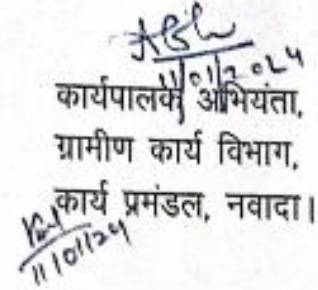 11/01/2024
कार्यपालक अभियंता,
ग्रामीण कार्य विभाग,
कार्य प्रमंडल, नवादा।
11/01/24